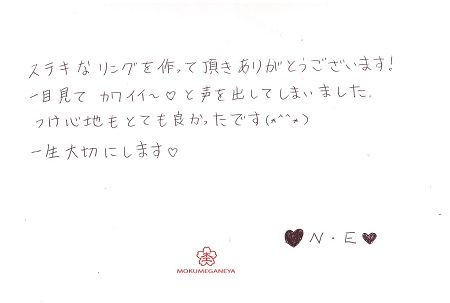 ステキなリングを作って頂きありがとうございます!
一目見て カワイイ〜♡と声を出してしまいました。
つけ心地もとても良かったです(*^^*)
一生大切にします♡
♥N・E♥
MOKUMEGANEYA